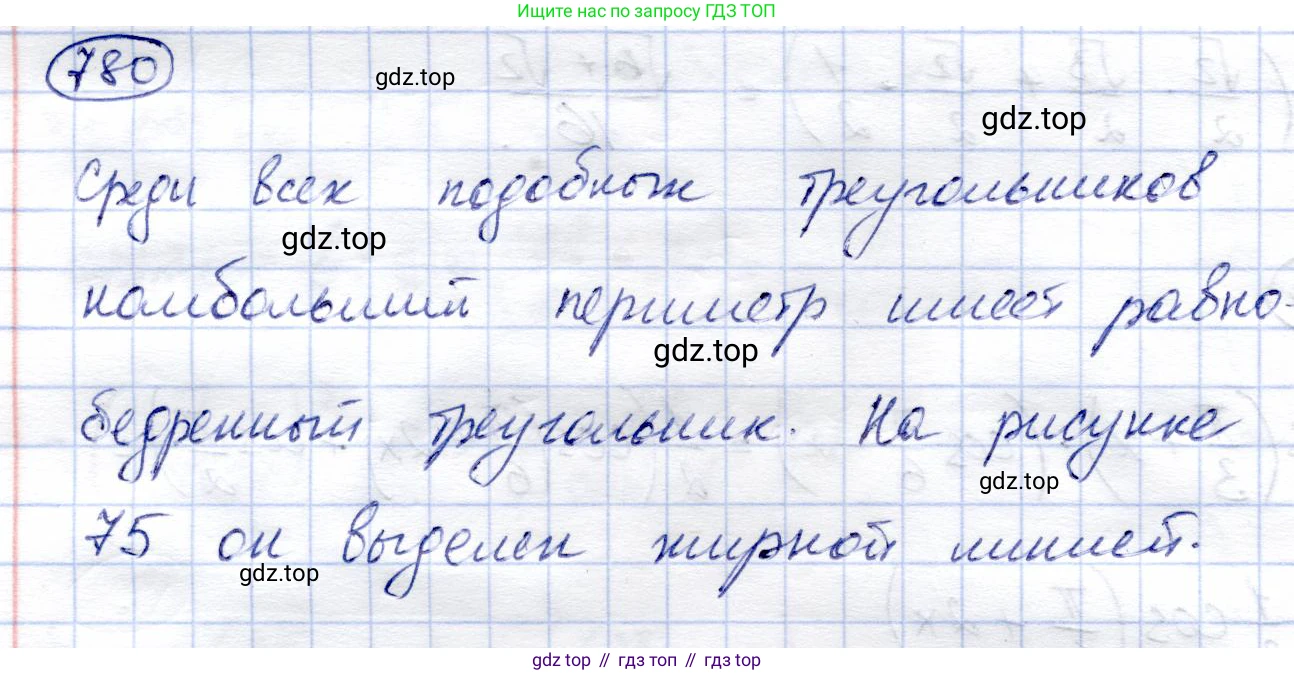 Ищите нас по запросу ГДЗ ТОП
780
gdz.top
gdz.top
Среди всех подобных треугольников
gdz.top
наибольший периметр имеет равно-
gdz.top
бедренный треугольник. На рисунке
gdz.top
75 он выделен жирной линией.
gdz.top
gdz top // гдз топ // гдз top